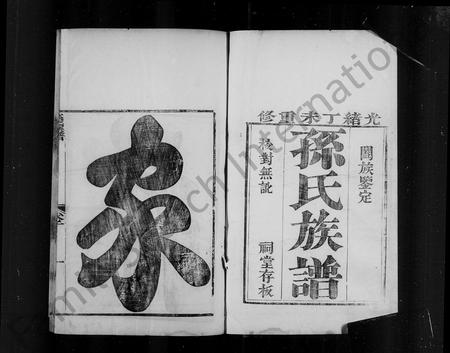 光緒丁未重修
闔族鑒定
孫氏族譜
校對無訛
祠堂存板
家
FamilySearch International